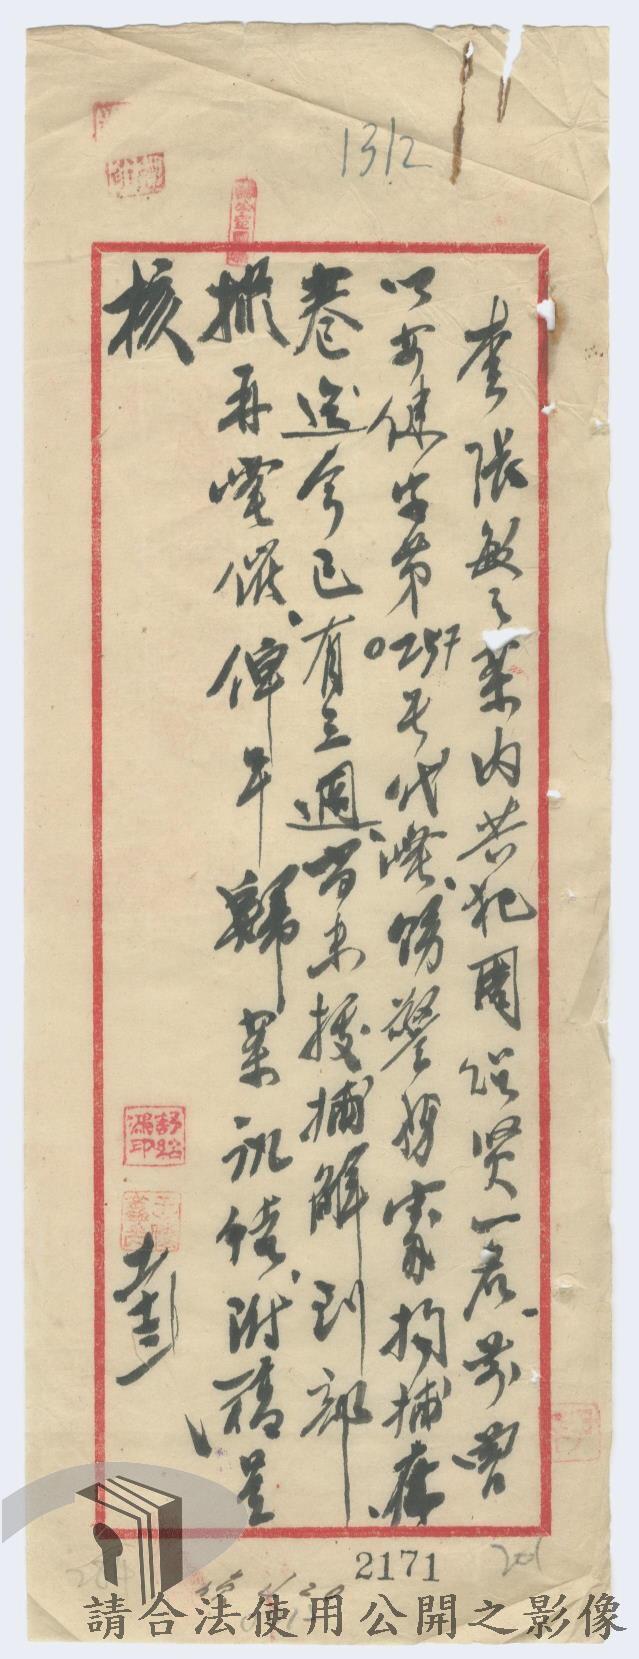 1312
查張敏之案内共犯周紹賢一名、前曾
以安健字第0257号代電、飭警務處拘捕
卷迄今已有三週尚未據捕解到部
擬再電催、俾早歸案訊結、附稿呈
核
舒紹鴻印
2171
請合法使用公開之影像